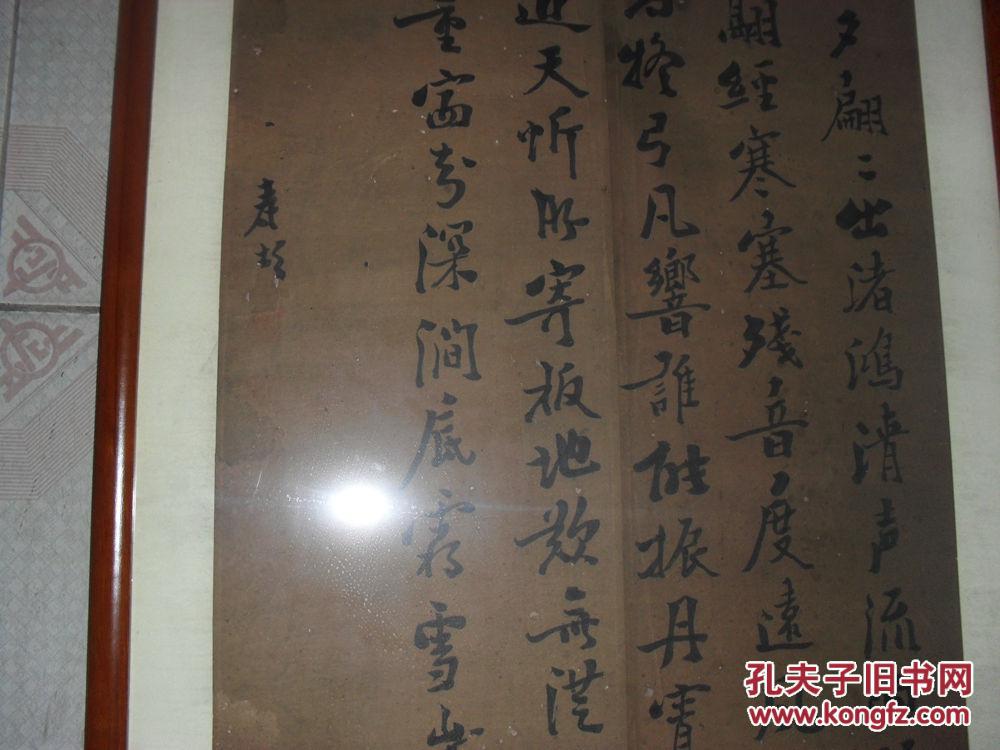 夕翩二出渚鴻清声流
翮經寒塞殘音度遠風
弓凡響誰能振丹霄
天忻所寄板地歎無
重當於深澗底霜雪
春
孔夫子旧书网
www.kongfz.com